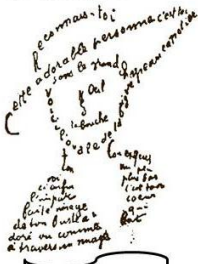 Reconnais-toi
Cette adorable personne c'est toi
Sous le grand chapeau canotier
Œil
la bouche
Voici l'ovale de ta figure
Ton
cou exquis
Voi
ci enfin
l'impar
faite image
de ton buste a
doré vu comme
à travers un nuage
un peu
plus bas
c'est ton
coeur
qui
bat